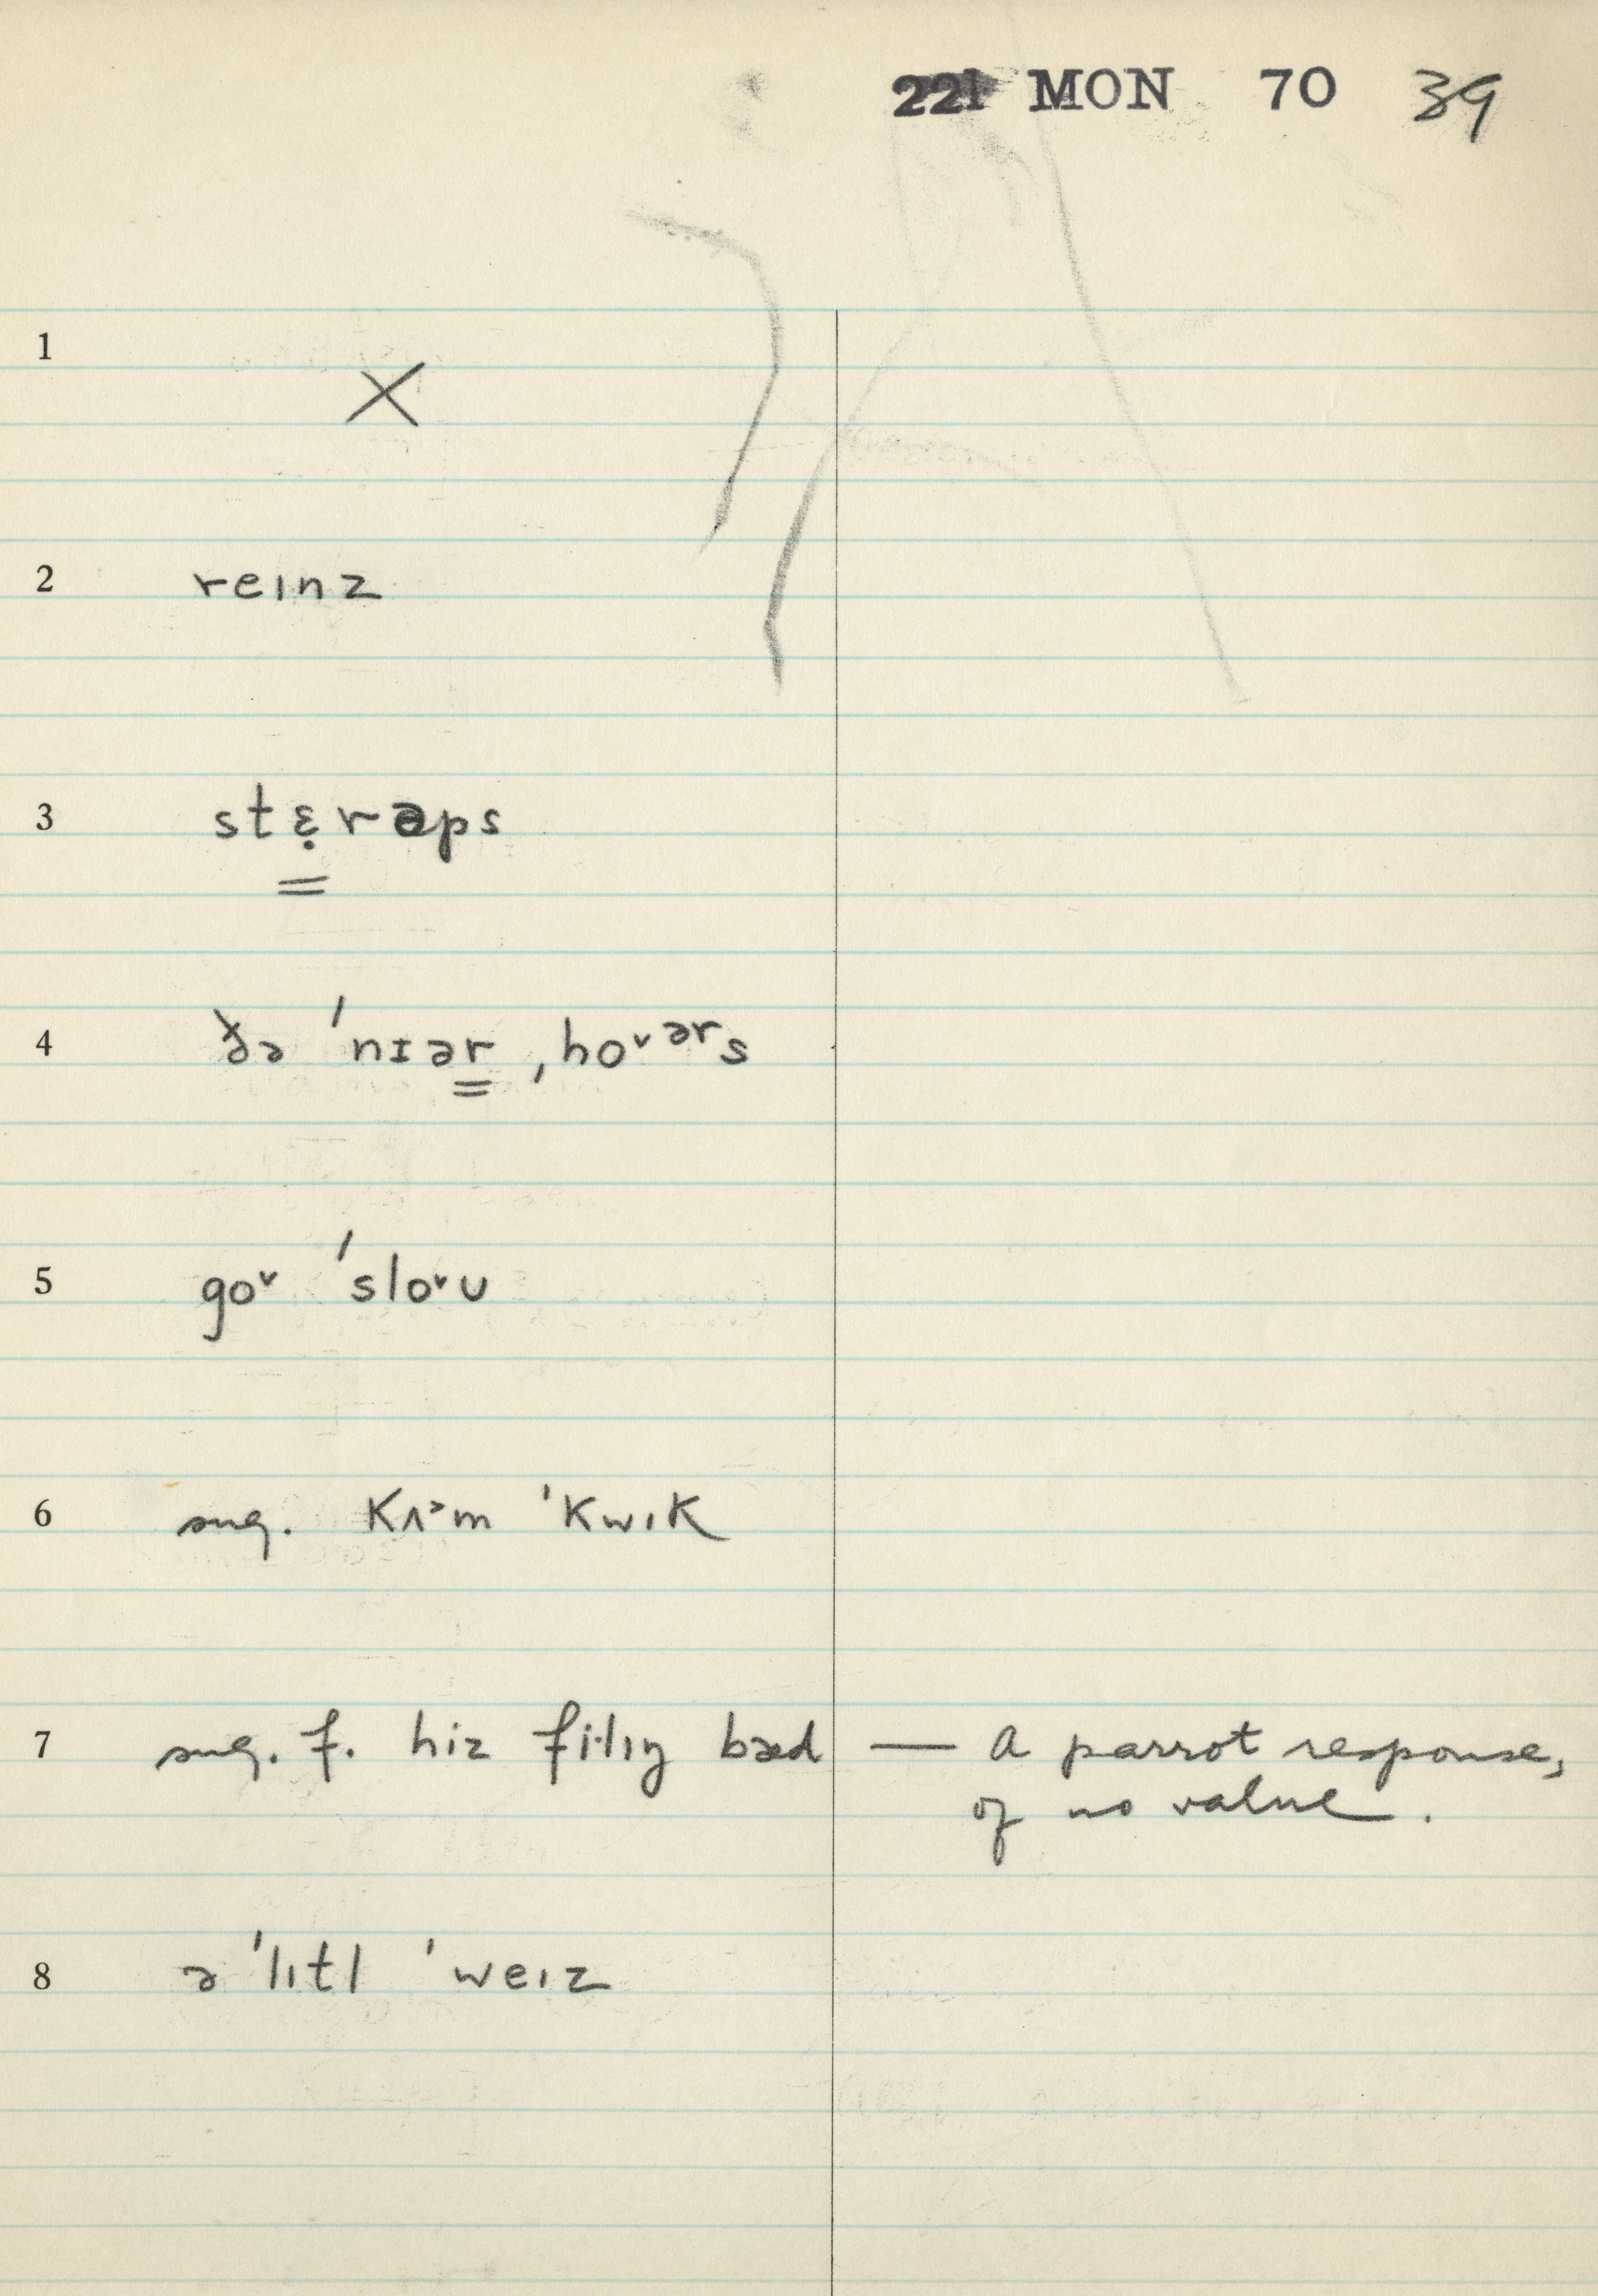 221 MON 70 39
1 X
2 reɪnz
3 stɛ̣rəps
4 ðə ˈnɪər ˌho˅ərs
5 go˅ ˈslo˅ʊ
6 sug. kʌ˃m ˈkwɪk
7 sug. f. hiz fi·lɪŋ bæd — a parrot response,
of no value.
8 ə ˈlɪtl ˈweɪz